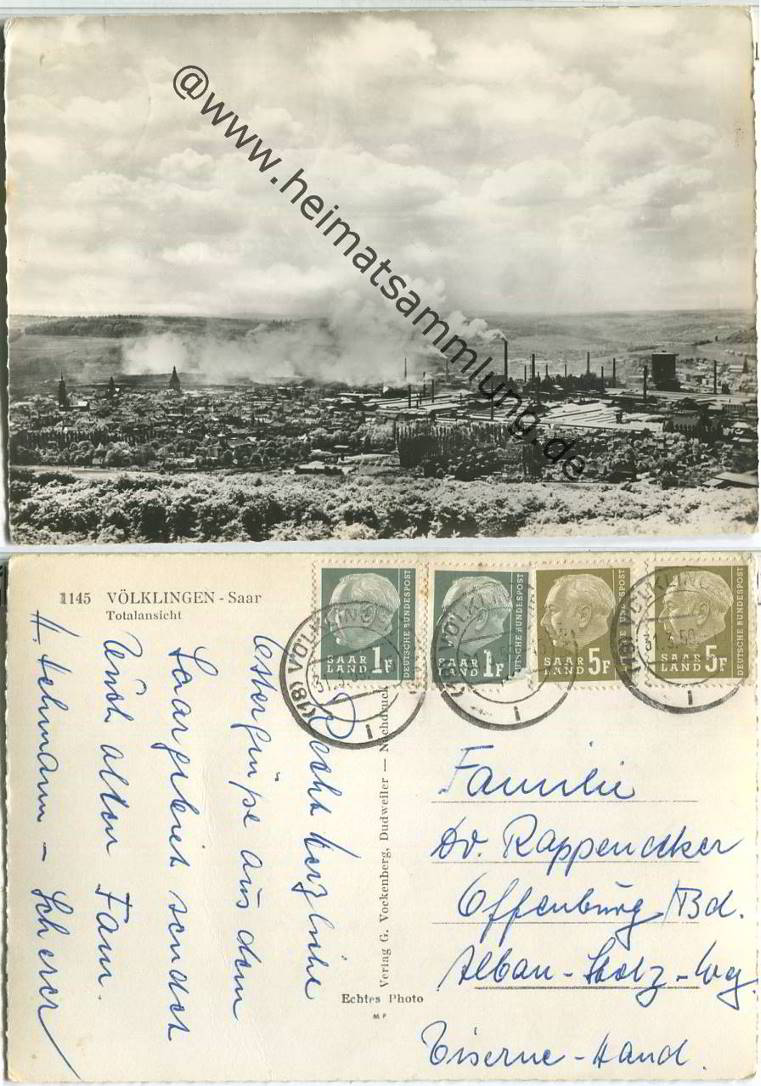 @www.heimatsammlung.de
1145 VÖLKLINGEN - Saar
Totalansicht
SAAR 1F
LAND
DEUTSCHE BUNDESPOST
SAAR 1F
LAND
DEUTSCHE BUNDESPOST
SAAR 5F
LAND
DEUTSCHE BUNDESPOST
SAAR 5F
LAND
DEUTSCHE BUNDESPOST
(18) VÖLKLINGEN
(18) VÖLKLINGEN
(18) VÖLKLINGEN
31.3.58
Recht herzliche
Ostergrüße aus dem
Saargebiet sendet
Euch allen Fam.
H. Lehmann - Scherer
Verlag G. Vockenberg, Dudweiler — Nachdruck
Echtes Photo
MP
Familie
Dr. Rappenecker
Offenburg/Bd.
Alban-Stolz-Weg
Eiserne-Hand.